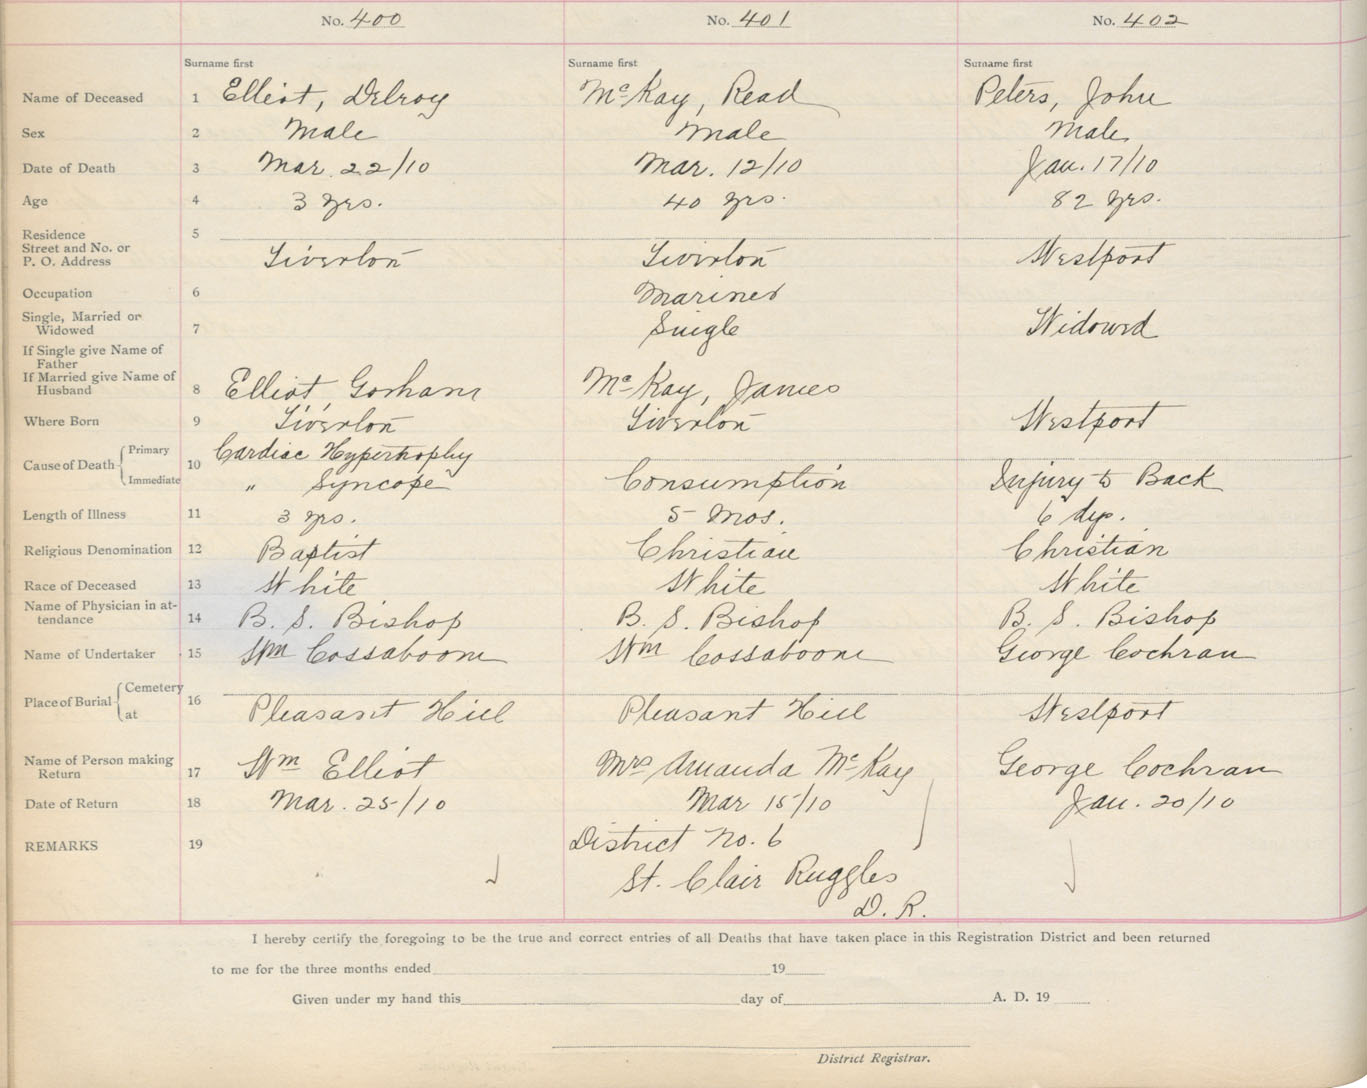 No. 400 No. 401 No. 402
Surname first Surname first Surname first
Name of Deceased 1 Elliot, Delroy McKay, Read Peters, John
Sex 2 Male Male Male
Date of Death 3 Mar. 22/10 Mar. 12/10 Jan. 17/10
Age 4 3 yrs. 40 yrs. 82 yrs.
Residence 5
Street and No. or
P. O. Address Tiverton Tiverton Westport
Occupation 6 Mariner
Single, Married or
Widowed 7 Single Widowed
If Single give Name of
Father
If Married give Name of
Husband 8 Elliot, Gorham McKay, James
Where Born 9 Tiverton Tiverton Westport
Cause of Death Primary 10 Cardiac Hypertrophy
Immediate " Syncope Consumption Injury to Back
Length of Illness 11 3 yrs. 5 Mos. 6 dys.
Religious Denomination 12 Baptist Christian Christian
Race of Deceased 13 White White White
Name of Physician in at-
tendance 14 B. S. Bishop B. S. Bishop B. S. Bishop
Name of Undertaker 15 Wm Cossaboom Wm Cossaboom George Cochran
Place of Burial Cemetery 16
at Pleasant Hill Pleasant Hill Westport
Name of Person making
Return 17 Wm Elliot Mrs Amanda McKay George Cochran
Date of Return 18 Mar. 25/10 Mar 15/10 Jan. 20/10
REMARKS 19 District No. 6
St. Clair Ruggles
D. R.
I hereby certify the foregoing to be the true and correct entries of all Deaths that have taken place in this Registration District and been returned
to me for the three months ended 19
Given under my hand this day of A. D. 19
District Registrar.